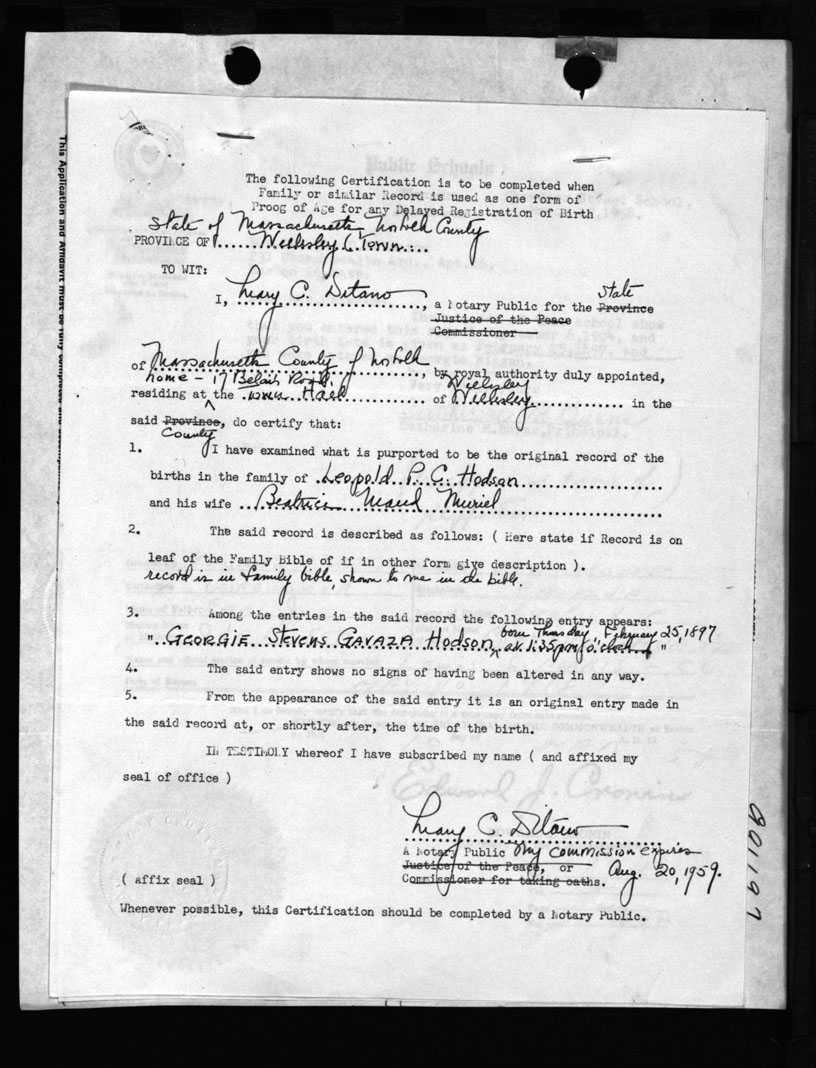 The following Certification is to be completed when
Family or similar Record is used as one form of
Proog of Age for any Delayed Registration of Birth
State of Massachusetts, County
PROVINCE OF ...... Wellesley Town ...
TO WIT:
State
I, Mary C. Ditano, a Notary Public for the Province
Justice of the Peace
Commissioner
of Massachusetts County of Norfolk, by royal authority duly appointed,
home - 17 Belair Road. Wellesley
residing at the Town Hall of Wellesley in the
said Province, do certify that:
County
1. I have examined what is purported to be the original record of the
births in the family of Leopold P. C. Hodson
and his wife Beatrice Maud Muriel
2. The said record is described as follows: ( Here state if Record is on
leaf of the Family Bible of if in other form give description ).
record is in family bible, shown to me in the bible.
3. Among the entries in the said record the following entry appears:
born Thursday, February 25, 1897
" GEORGIE Stevens GAVAZA Hodson at 1:35 pm o'clock "
4. The said entry shows no signs of having been altered in any way.
5. From the appearance of the said entry it is an original entry made in
the said record at, or shortly after, the time of the birth.
IN TESTIMONY whereof I have subscribed my name ( and affixed my
seal of office )
Edward J. Cronin
Mary C. Ditano
A Notary Public My commission expires
Justice of the Peace, or Aug. 20, 1959.
Commissioner for taking oaths.
( Affix seal )
Whenever possible, this Certification should be completed by a Notary Public.
901197
This Application and Affidavit must be fully completed and
Public Schools